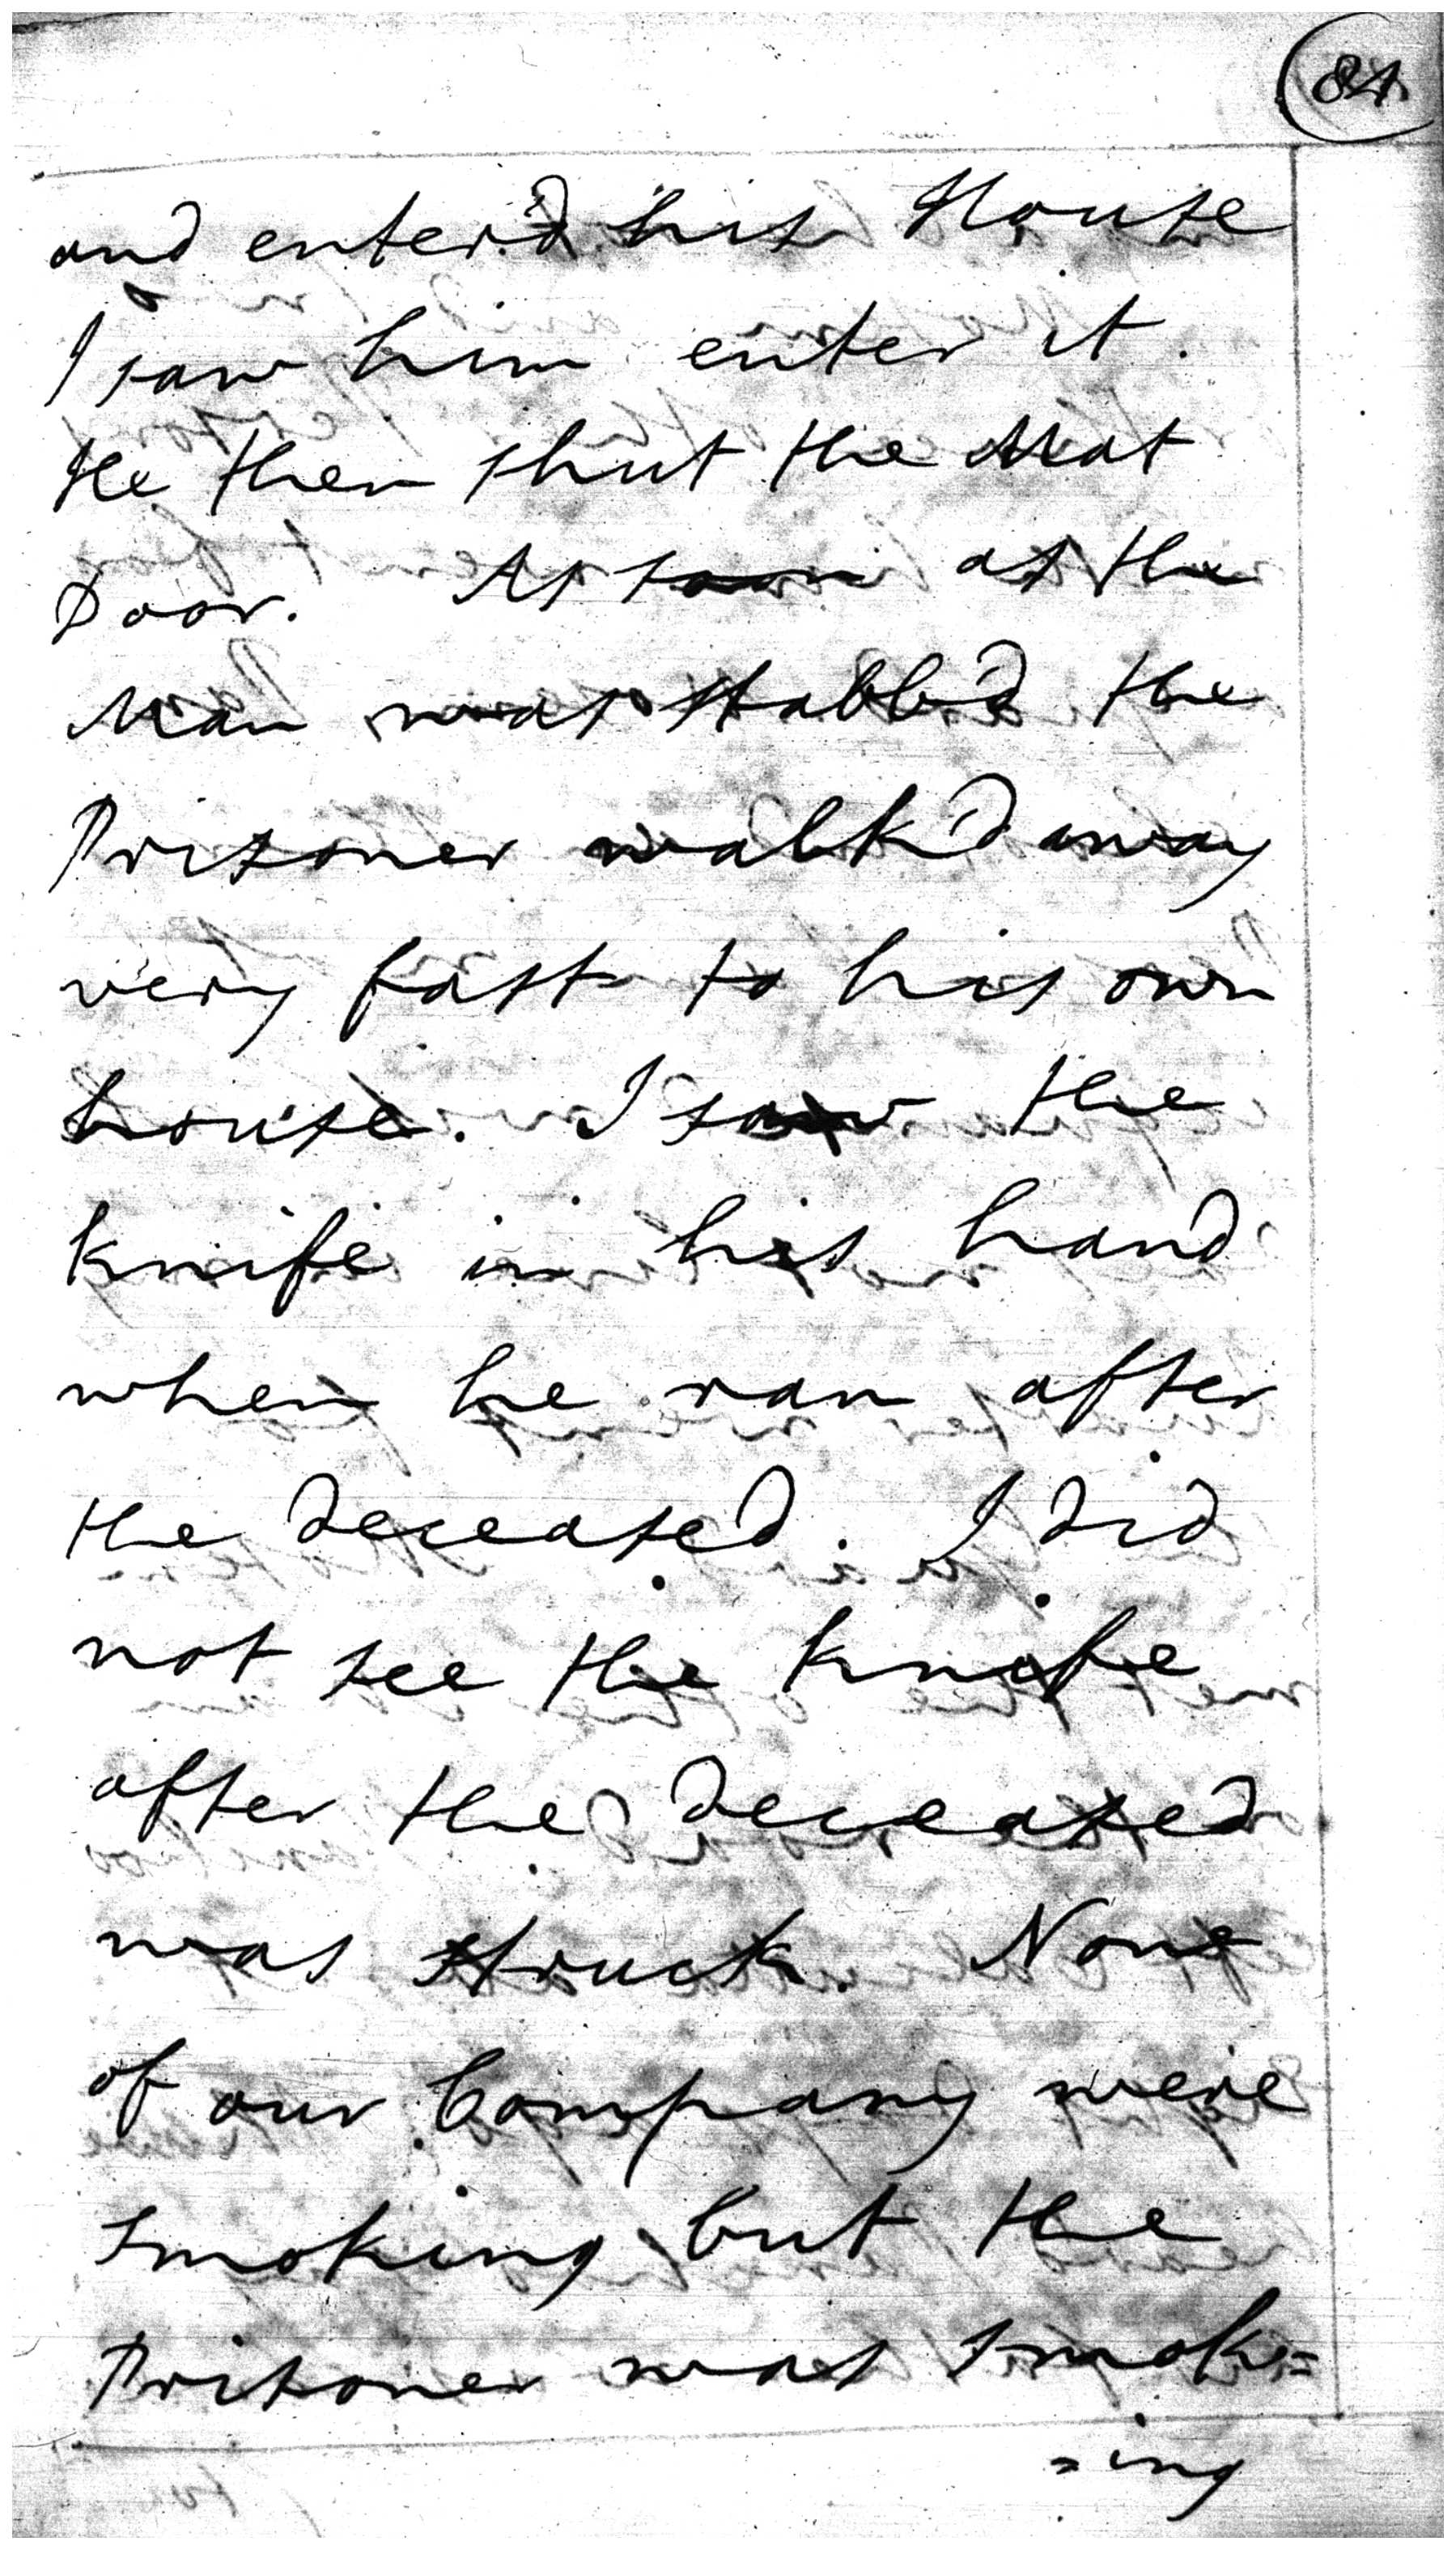 84
and enter'd his House
I saw him enter it.
He then shut the Mat
Door. As soon as the
Man was stabb'd the
Prisoner walk'd away
very fast to his own
house. I saw the
knife in his hand
when he ran after
the deceased. I did
not see the knife
after the deceased
was struck. None
of our Company were
smoking but the
Prisoner was smok=
=ing